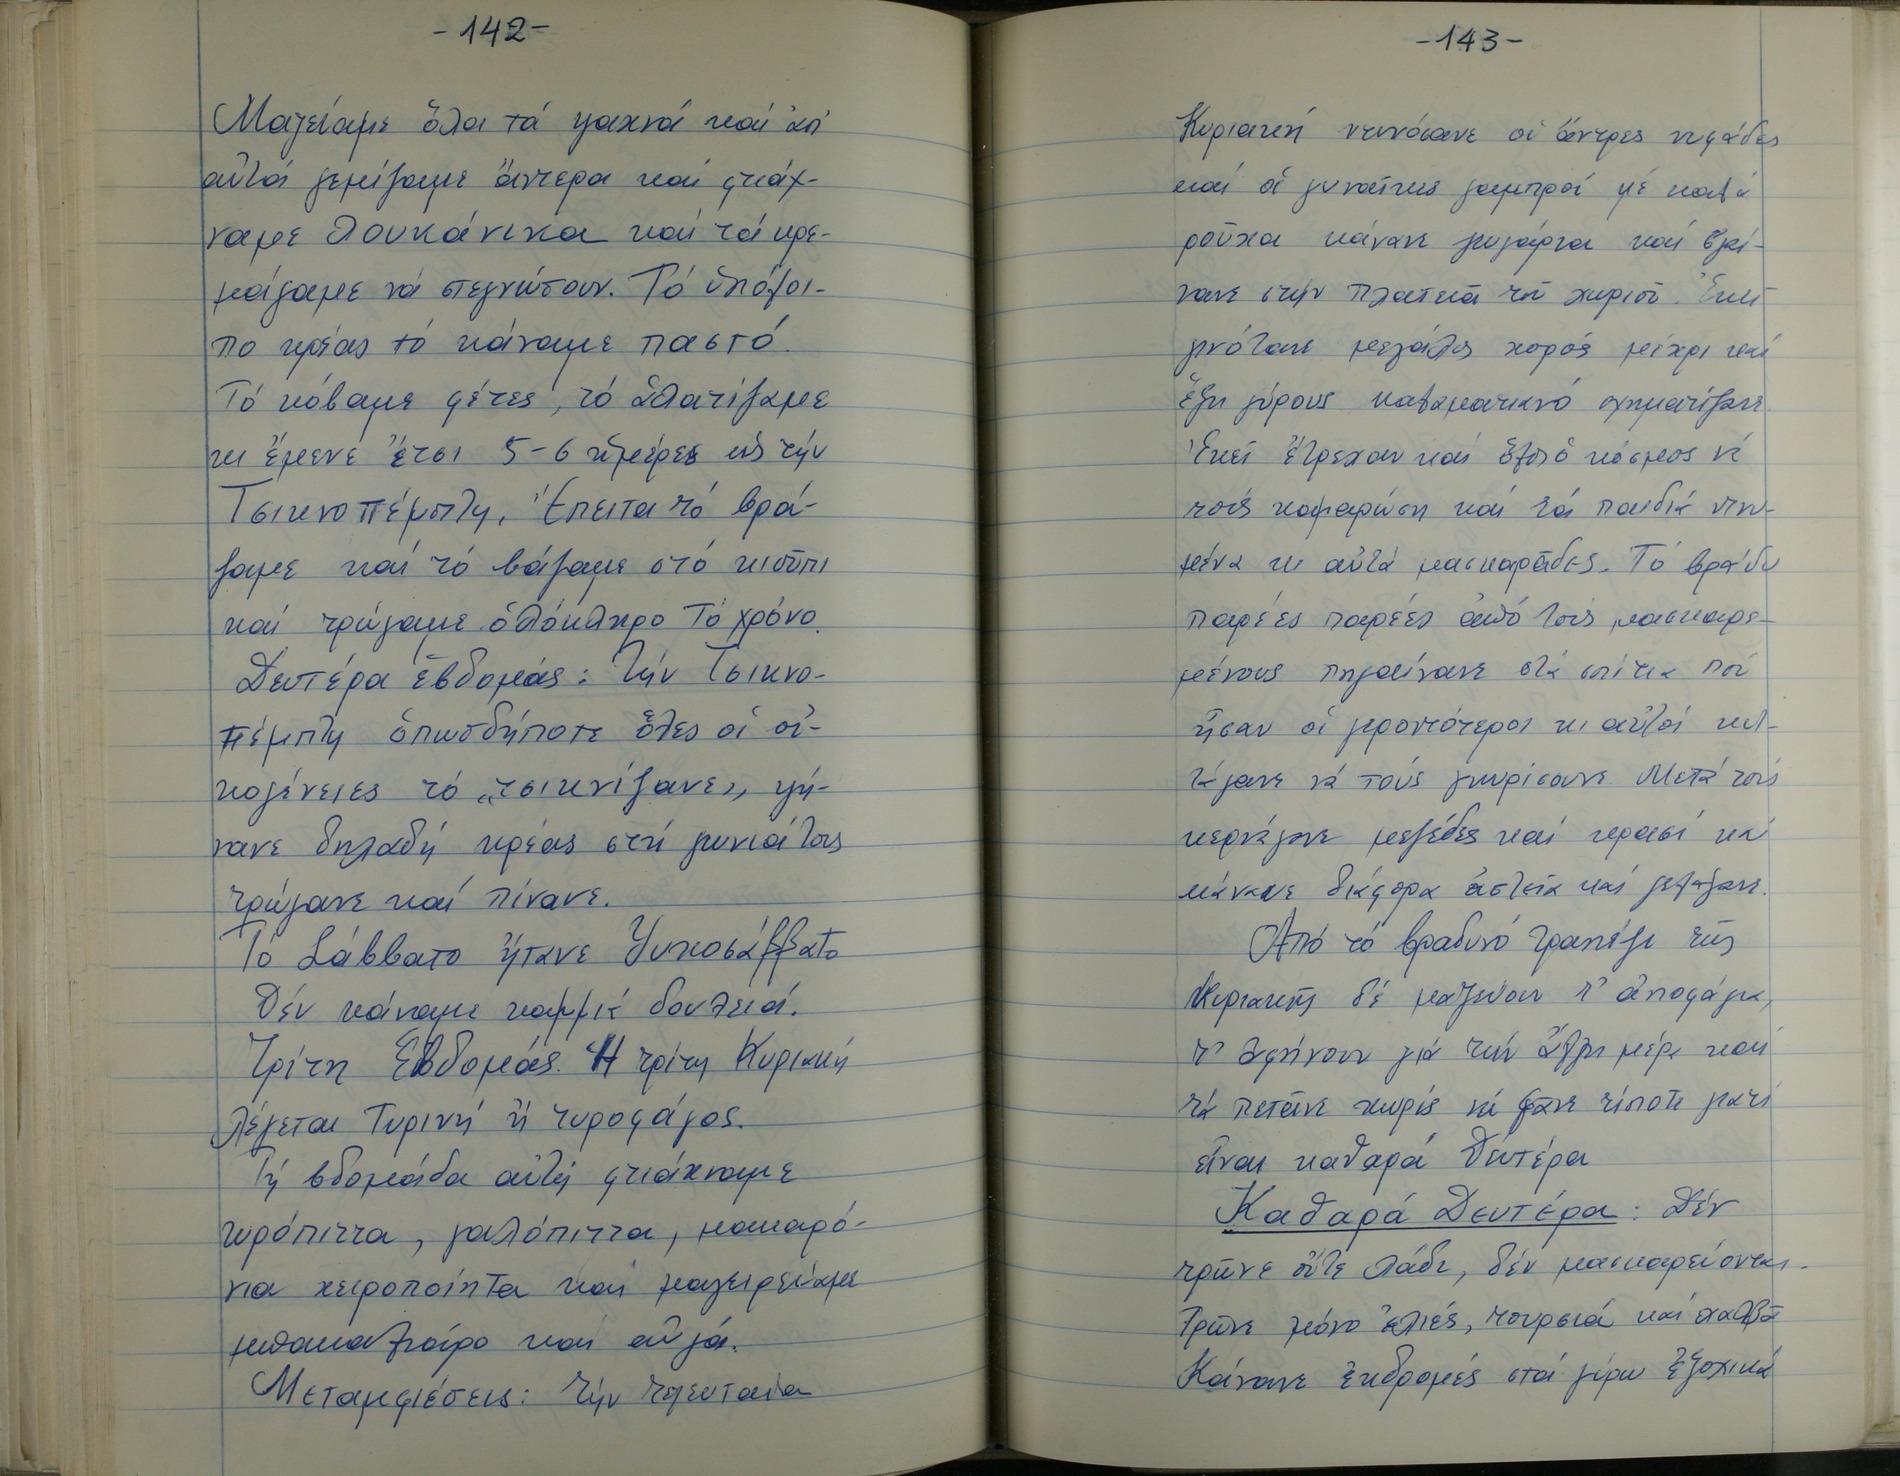 -142-
Μαζεύαμε ὅλα τά ψαχνά καί ἀπ'
αὐτά γεμίζαμε ἄντερα καί φτιάχ-
ναμε λουκάνικα καί τά κρε-
μάγαμε νά στεγνώσουν. Τό ὑπόλοι-
πο κρέας τό κάναμε παστό.
Τό κόβαμε φέτες, τό ἁλατίζαμε
κι ἔμενε ἔτσι 5-6 ἡμέρες ὡς τήν
Τσικνοπέμπτη. Ἔπειτα τό βρά-
ζαμε καί τό βάζαμε στό κιοῦπι
καί τρώγαμε ὁλόκληρο τό χρόνο.
Δευτέρα ἑβδομάς: Τήν Τσικνο-
πέμπτη ὁπωσδήποτε ὅλες οἱ οἰ-
κογένειες τό „τσικνίζανε", ψή-
νανε δηλαδή κρέας στή γωνιά τους
τρώγανε καί πίνανε.
Τό Σάββατο ἤτανε Ψυχοσάββατο
Δέν κάναμε καμμιά δουλειά.
Τρίτη Ἑβδομάς. Ἡ τρίτη Κυριακή
λέγεται Τυρινή ἤ τυροφάγος.
Τή βδομάδα αὐτή φτιάχναμε
τυρόπιττα, γαλόπιττα, μακαρό-
νια χειροποίητα καί μαγειρεύαμε
μπακαλιάρο καί αὐγά.
Μεταμφιέσεις: Τήν τελευταία
-143-
Κυριακή ντυνόσανε οἱ ἄντρες νυφάδες
καί οἱ γυναῖκες γαμπροί μέ
ροῦχα κάνανε ζευγάρια καί βγαί-
νανε στήν πλατεῖα τοῦ χωριοῦ. Ἐκεῖ
γινότανε μεγάλος χορός μέχρι καί
ἕξη γύρους σχηματίζανε.
Ἐκεῖ ἔτρεχαν καί ὅλος ὁ κόσμος νά
τούς καμαρώση καί τά παιδιά ντυ-
μένα κι αὐτά μασκαράδες. Τό βράδυ
παρέες παρέες ἀπό τούς μασκαρε-
μένους πηγαίνανε στά σπίτια πού
ἦσαν οἱ γεροντότεροι κι αὐτοί κυτ-
τάγανε νά τούς γνωρίσουνε. Μετά τούς
κερνάγανε μεζέδες καί κρασί καί
κάνανε διάφορα ἀστεῖα καί γελάγανε.
Ἀπό τό βραδυνό τραπέζι τῆς
Κυριακῆς δέ μαζεύουν τ' ἀποφάγια,
τ' ἀφήνουν γιά τήν ἄλλη μέρα καί
τά πετᾶνε χωρίς νά φᾶνε τίποτε γιατί
εἶναι καθαρά Δευτέρα
Καθαρά Δευτέρα: Δέν
τρῶνε οὔτε λάδι, δέν μασκαρεύονται.
Τρῶνε μόνο ἐλιές, τουρσιά καί χαλβά
Κάνανε ἐκδρομές στά γύρω ἐξοχικά